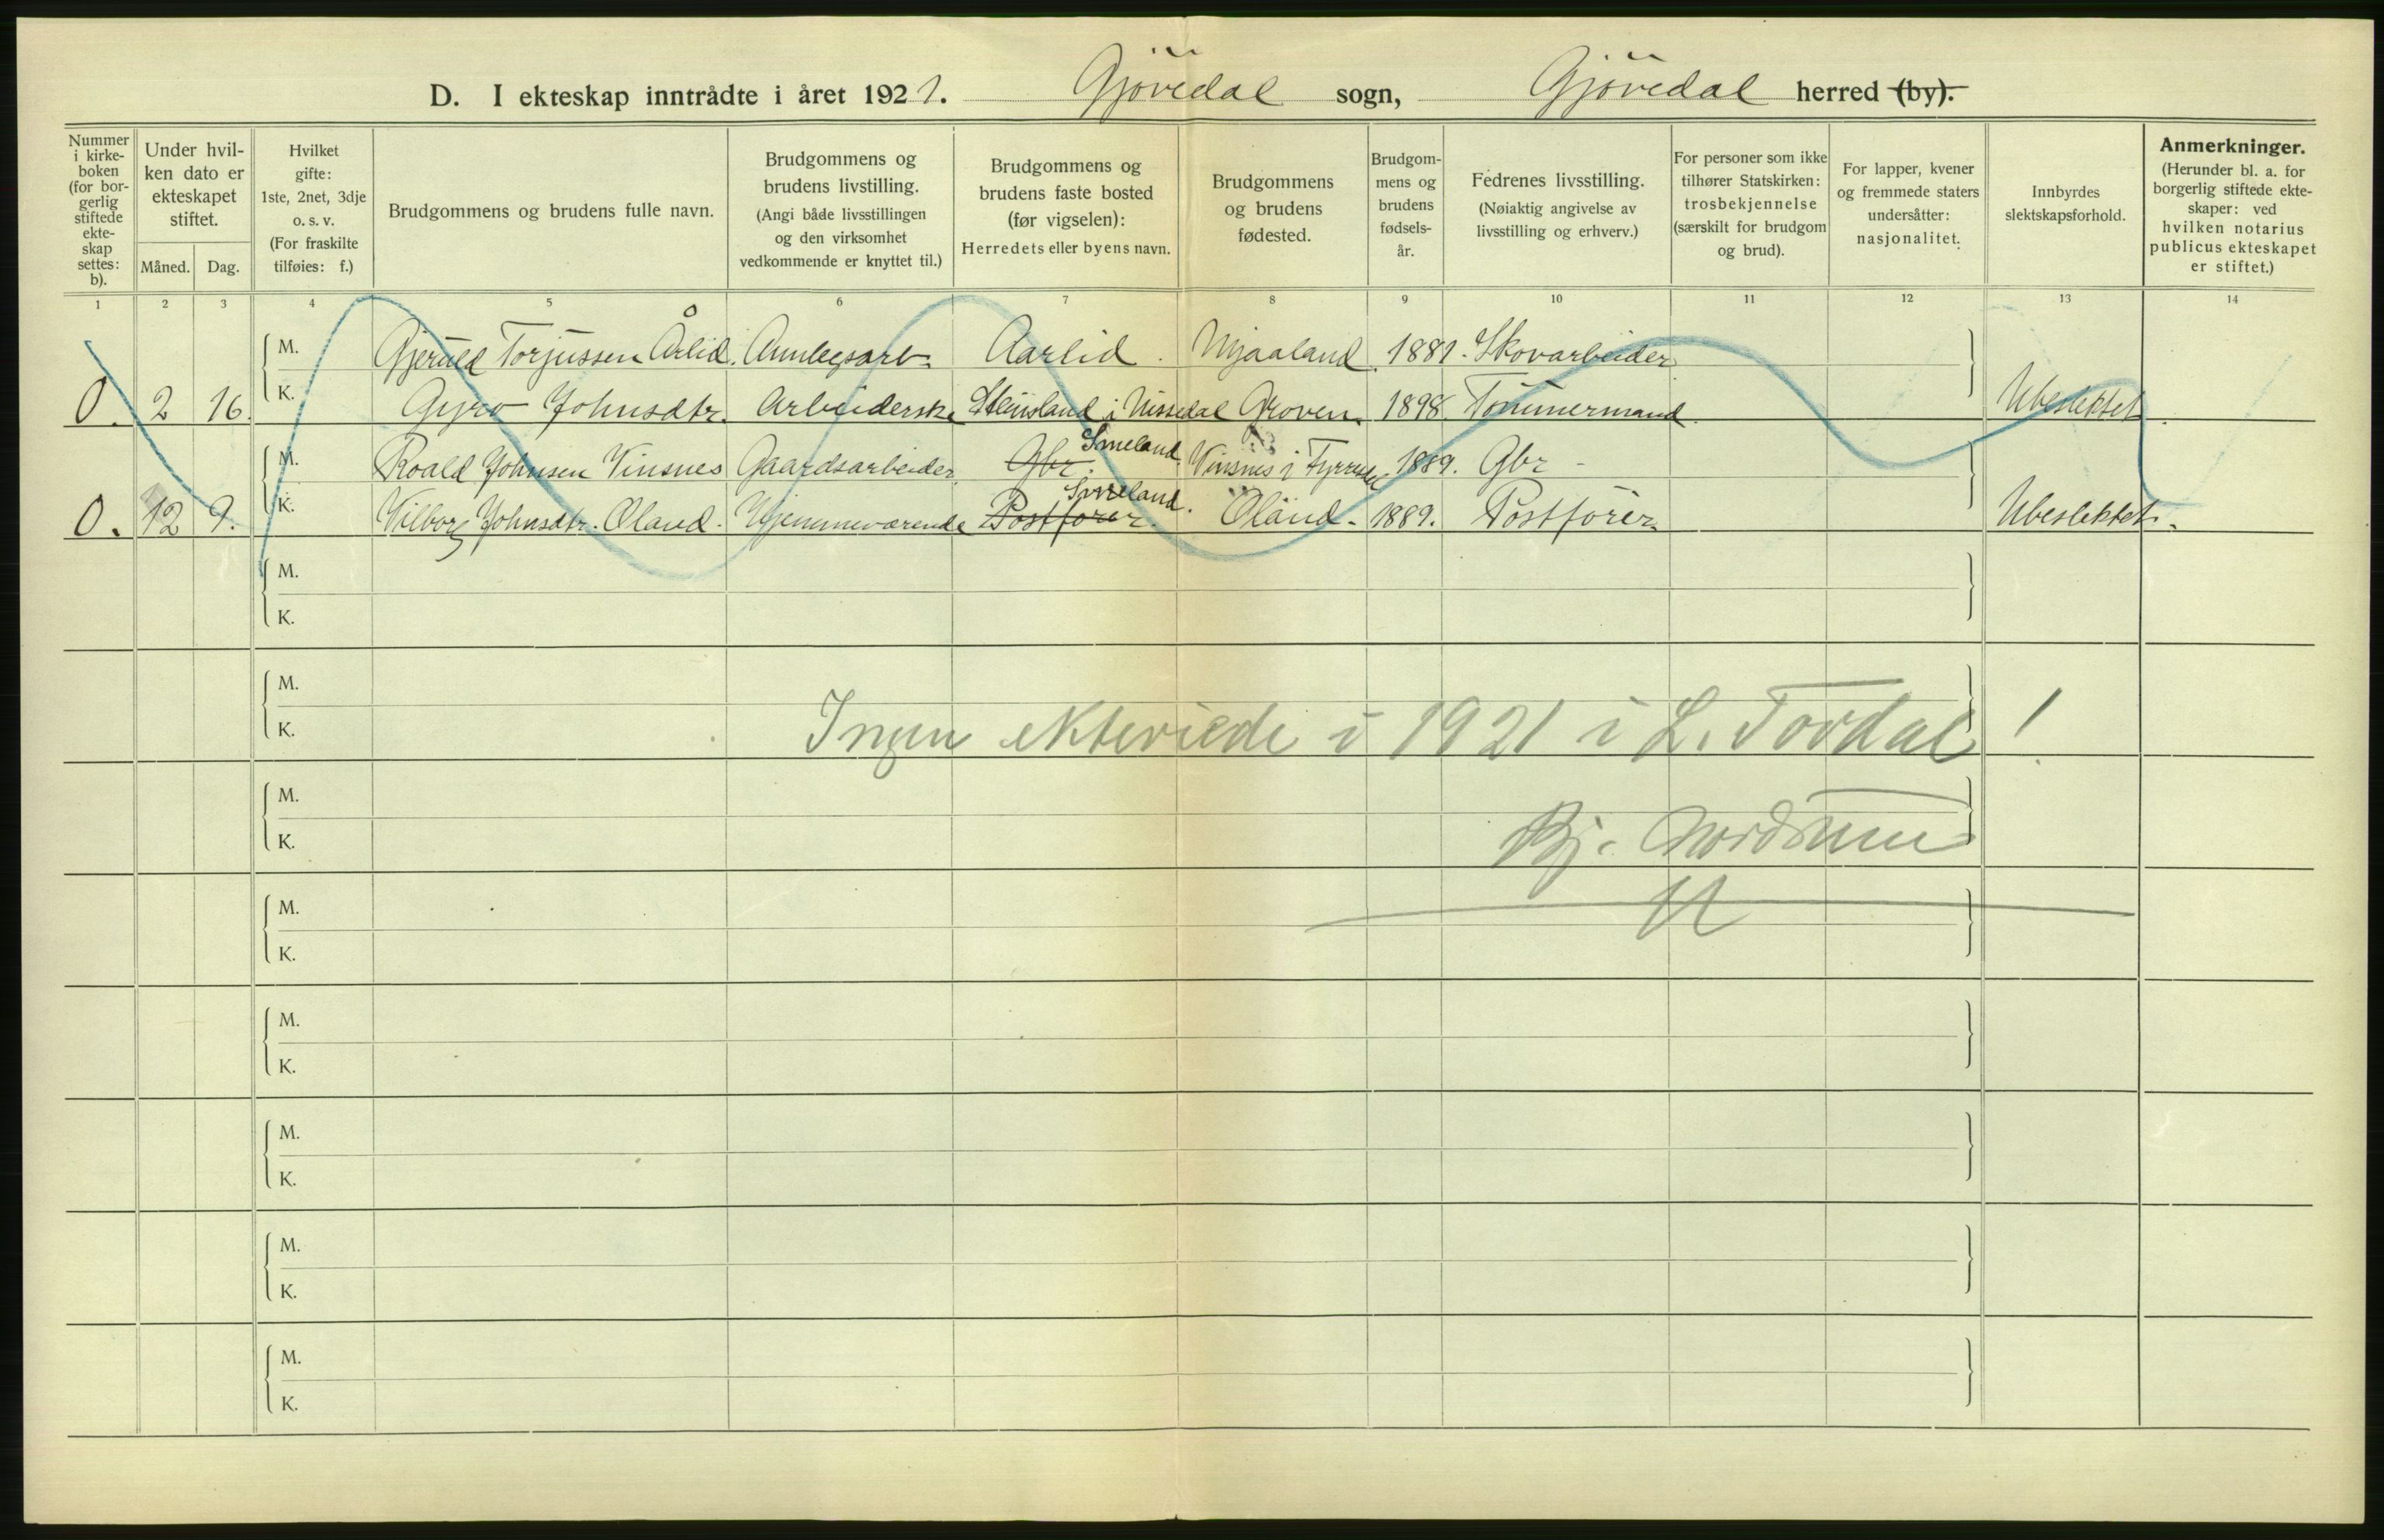 D. I ekteskap inntrådte i året 1921. Gjövedal sogn, Gjövedal herred (by).
Nummer i kirke- boken (for bor- gerlig stiftede ekte- skap settes: b).
Under hvil- ken dato er ekteskapet stiftet.
Måned. Dag.
Hvilket gifte: 1ste, 2net, 3dje o. s. v. (For fraskilte tilføies: f.)
Brudgommens og brudens fulle navn.
Brudgommens og brudens livstilling. (Angi både livsstillingen og den virksomhet vedkommende er knyttet til.)
Brudgommens og brudens faste bosted (før vigselen): Herredets eller byens navn.
Brudgommens og brudens fødested.
Brudgom- mens og brudens fødsels- år.
Fedrenes livsstilling. (Nøiaktig angivelse av livsstilling og erhverv.)
For personer som ikke tilhører Statskirken: trosbekjennelse (særskilt for brudgom og brud).
For lapper, kvener og fremmede staters undersåtter: nasjonalitet.
Innbyrdes slektskapsforhold.
Anmerkninger. (Herunder bl. a. for borgerlig stiftede ekte- skaper: ved hvilken notarius publicus ekteskapet er stiftet.)
1 2 3 4 5 6 7 8 9 10 11 12 13 14
M. Gjeruld Torjussen Årlid. Annlegsarb. Aarlid. Mjaaland 1881. Skovarbeider
0. 2 16. K. Gyro Johnsdtr. Arbeiderske Steinsland i Nissedal Groven. 1898. Tömmermand. Ubeslektet.
M. Roald Johnsen Vinsnes Gaardsarbeider. Gbr. Smeland. Vinsnes i Tyrredal 1889. Gbr -
0. 12 9. K. Vilborg Johnsdtr. Öland. Hjemmeværende Postförer. Smeland. Öland. 1889. Postförer. Ubeslektet.
M.
K.
M.
K.
Ingen ekteviede i 1921 i L. Tovdal!
M.
K.
Bj.
M.
K.
M.
K.
M.
K.
M.
K.
M.
K.